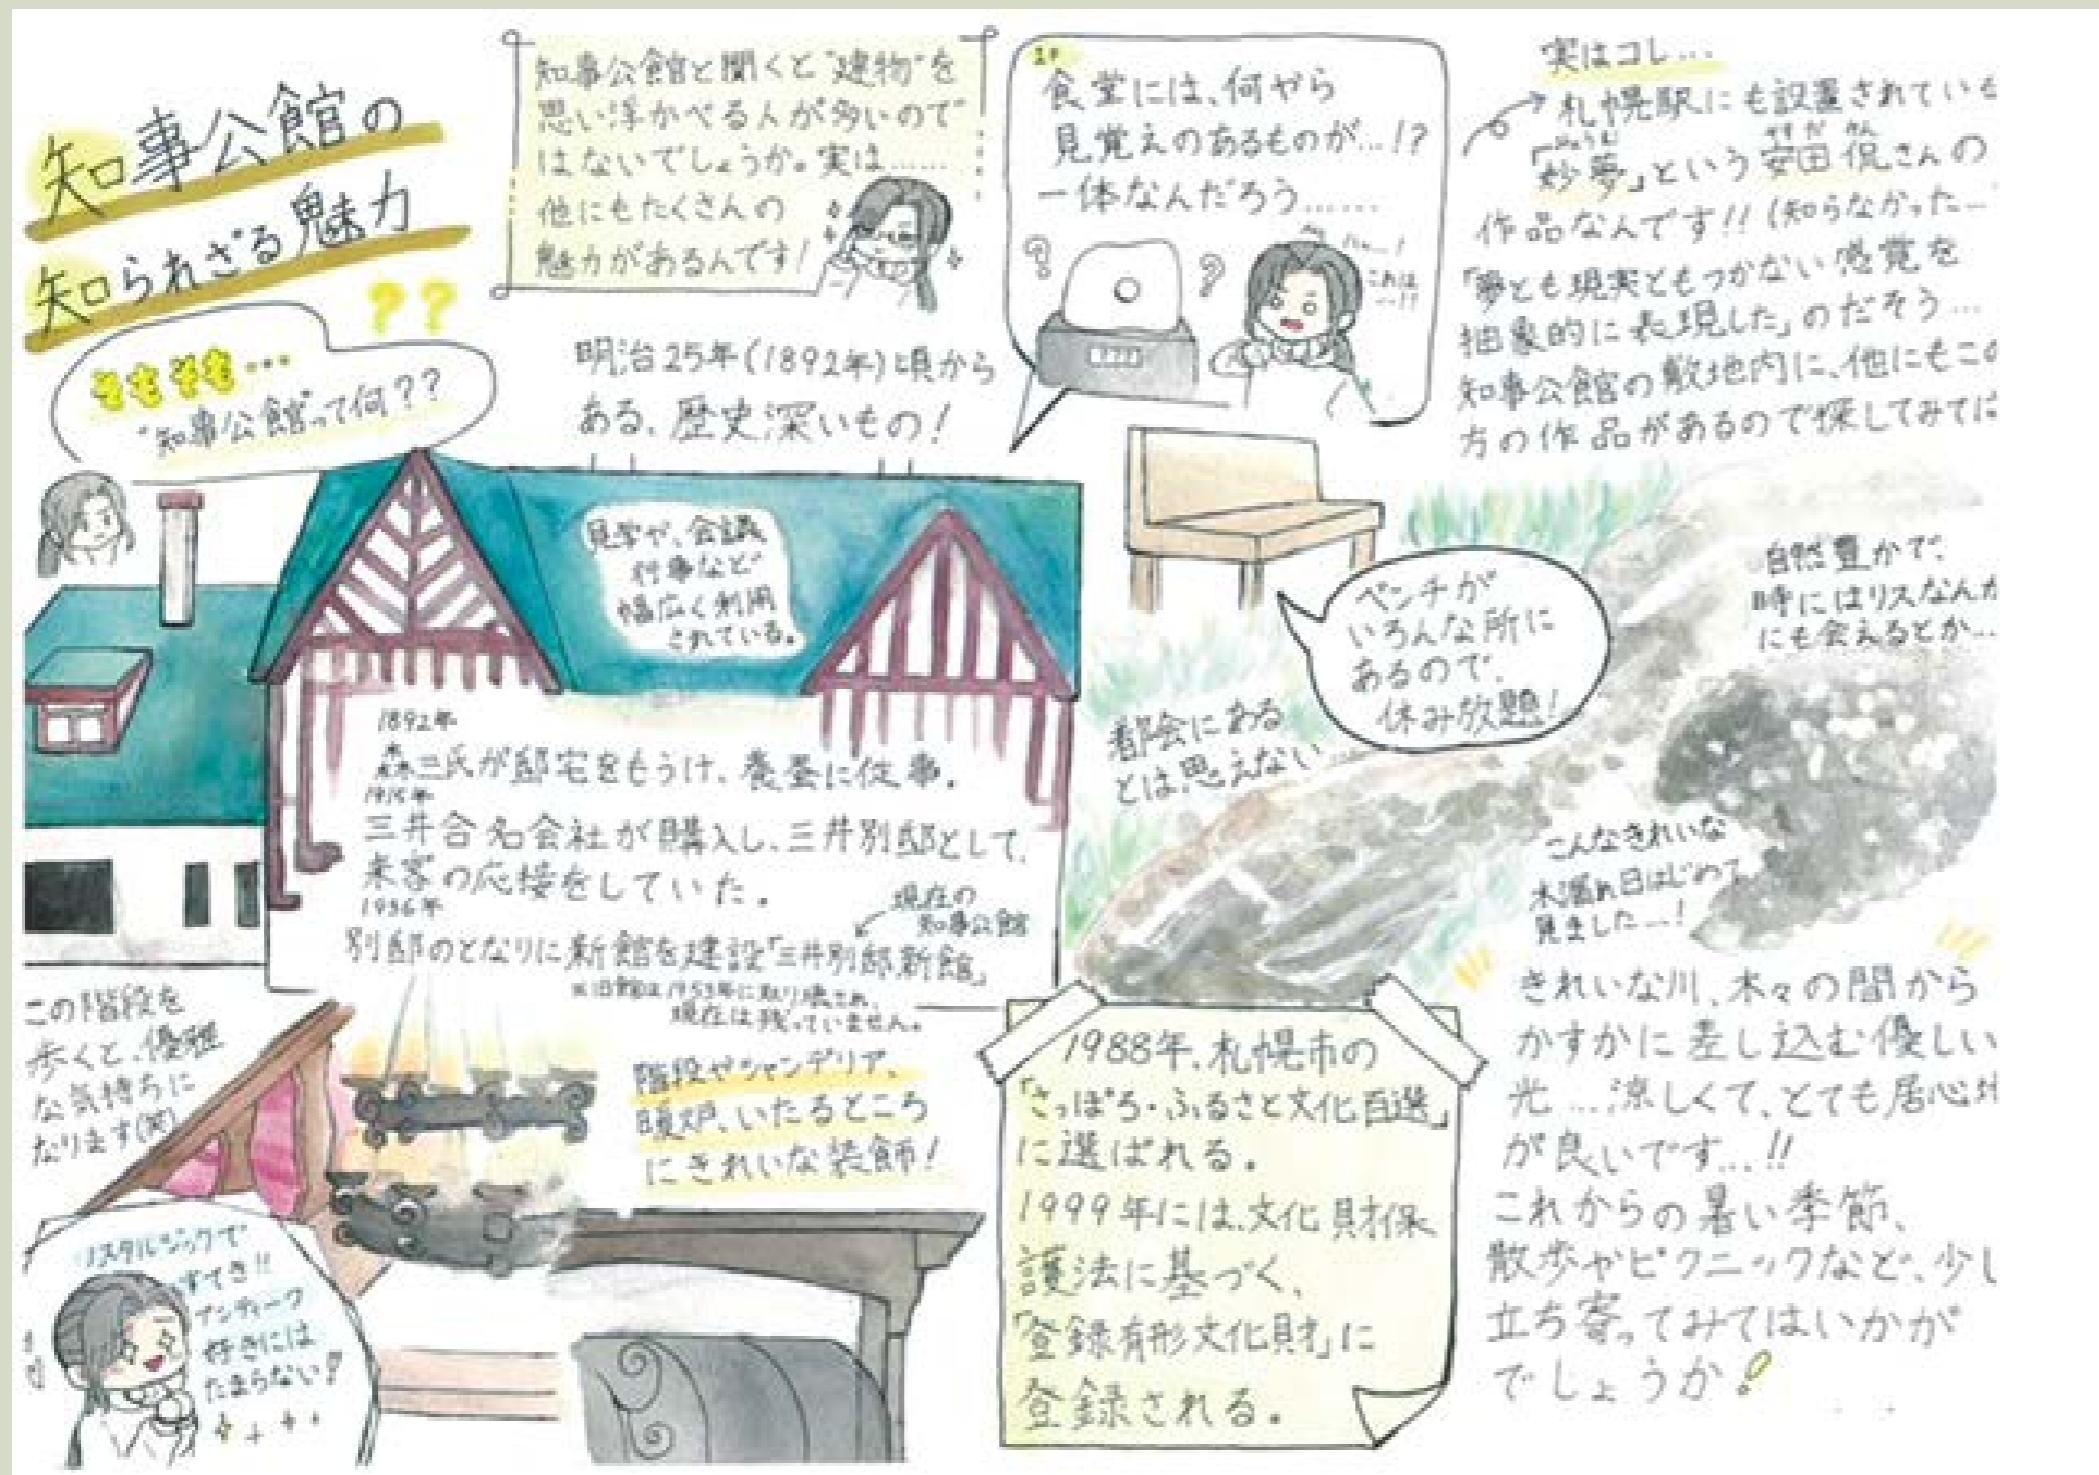 知事公館の
知られざる魅力
??
そもそも…
"知事公館"って何??
知事公館と聞くと"建物"を
思い浮かべる人が多いので
はないでしょうか。実は……
他にもたくさんの
魅力があるんです!
明治25年(1892年)頃から
ある、歴史深いもの!
見学や、会議
行事など
幅広く利用
されている。
1892年
森源三氏が邸宅をもうけ、養蚕に従事。
1915年
三井合名会社が購入し、三井別邸として、
来客の応接をしていた。
1936年
別邸のとなりに新館を建設「三井別邸新館」
現在の
知事公館
※旧館は1953年に取り壊され、
現在は残っていません。
この階段を
歩くと、優雅
な気持ちに
なります(笑)
階段やシャンデリア、
暖炉、いたるところ
にきれいな装飾!
ノスタルジックで
すてき!!
アンティーク
好きには
たまらない!
1F
食堂には、何やら
見覚えのあるものが…!?
一体なんだろう……
?
?
これは
…!?
実はコレ…
札幌駅にも設置されている
「妙夢」という安田侃さんの
作品なんです!!(知らなかった…
「夢とも現実ともつかない感覚を
抽象的に表現した」のだそう…
知事公館の敷地内に、他にもこの
方の作品があるので探してみては
ベンチが
いろんな所に
あるので、
休み放題!
都会にある
とは、思えない
自然豊かで、
時にはリスなんか
にも会えるとか…
こんなきれいな
木漏れ日はじめて
見ました…!
1988年、札幌市の
「さっぽろ・ふるさと文化百選」
に選ばれる。
1999年には、文化財保
護法に基づく、
「登録有形文化財」に
登録される。
きれいな川、木々の間から
かすかに差し込む優しい
光…涼しくて、とても居心地
が良いです…!!
これからの暑い季節、
散歩やピクニックなど、少し
立ち寄ってみてはいかが
でしょうか!